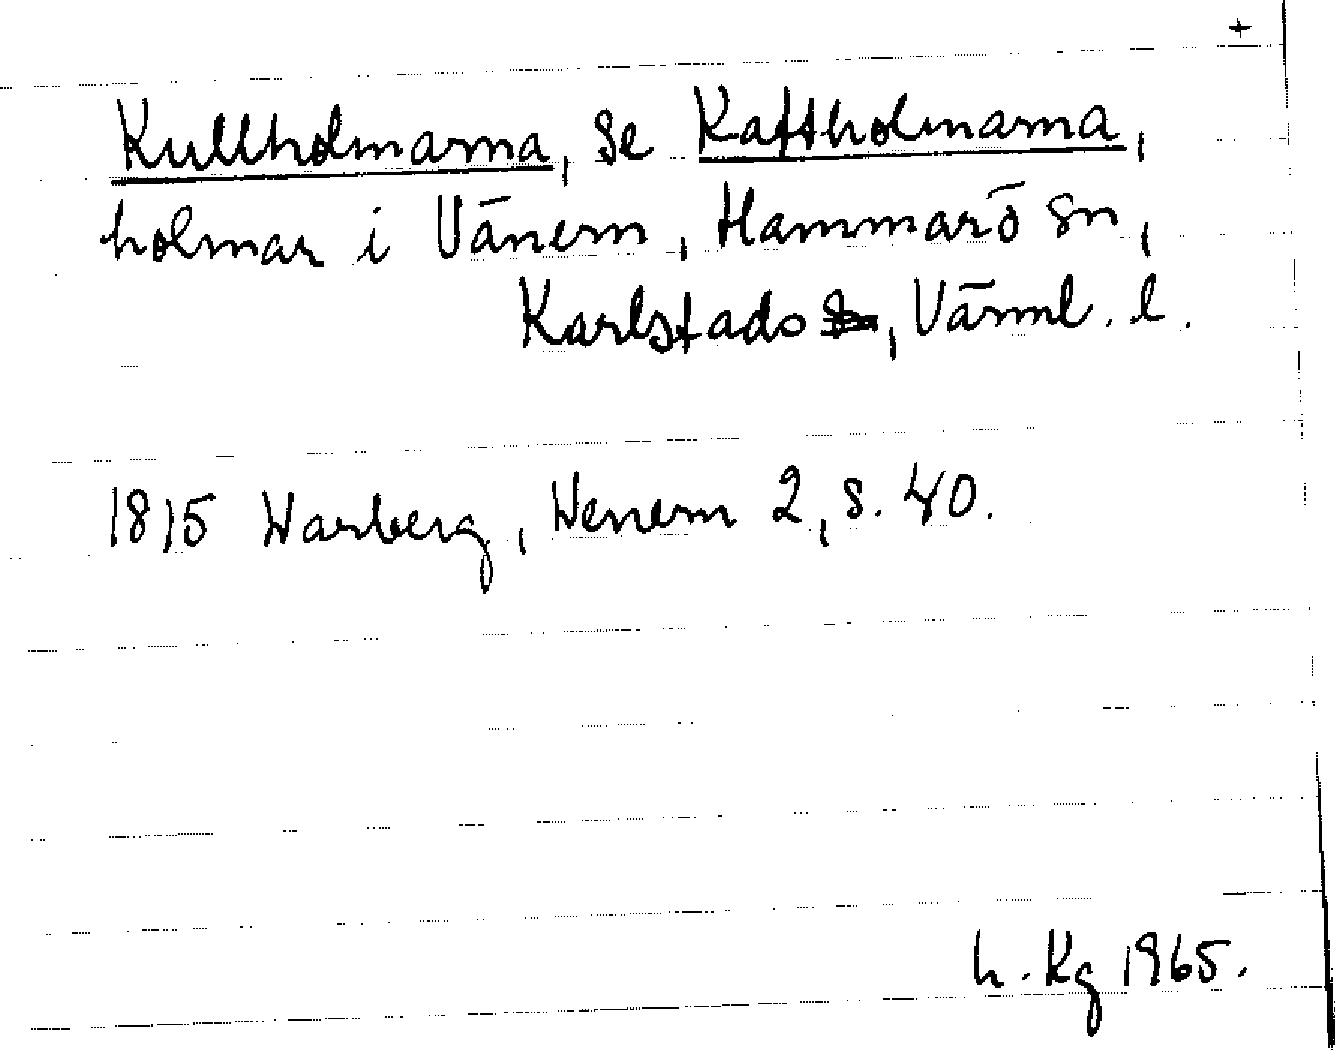 +
Kullholmarna, se Kaftholmarna,
holmar i Vänern, Hammarö sn,
Karlstads , Värml. l.
1815 Warberg, Wenern 2, s. 40.
h. Kg 1965.